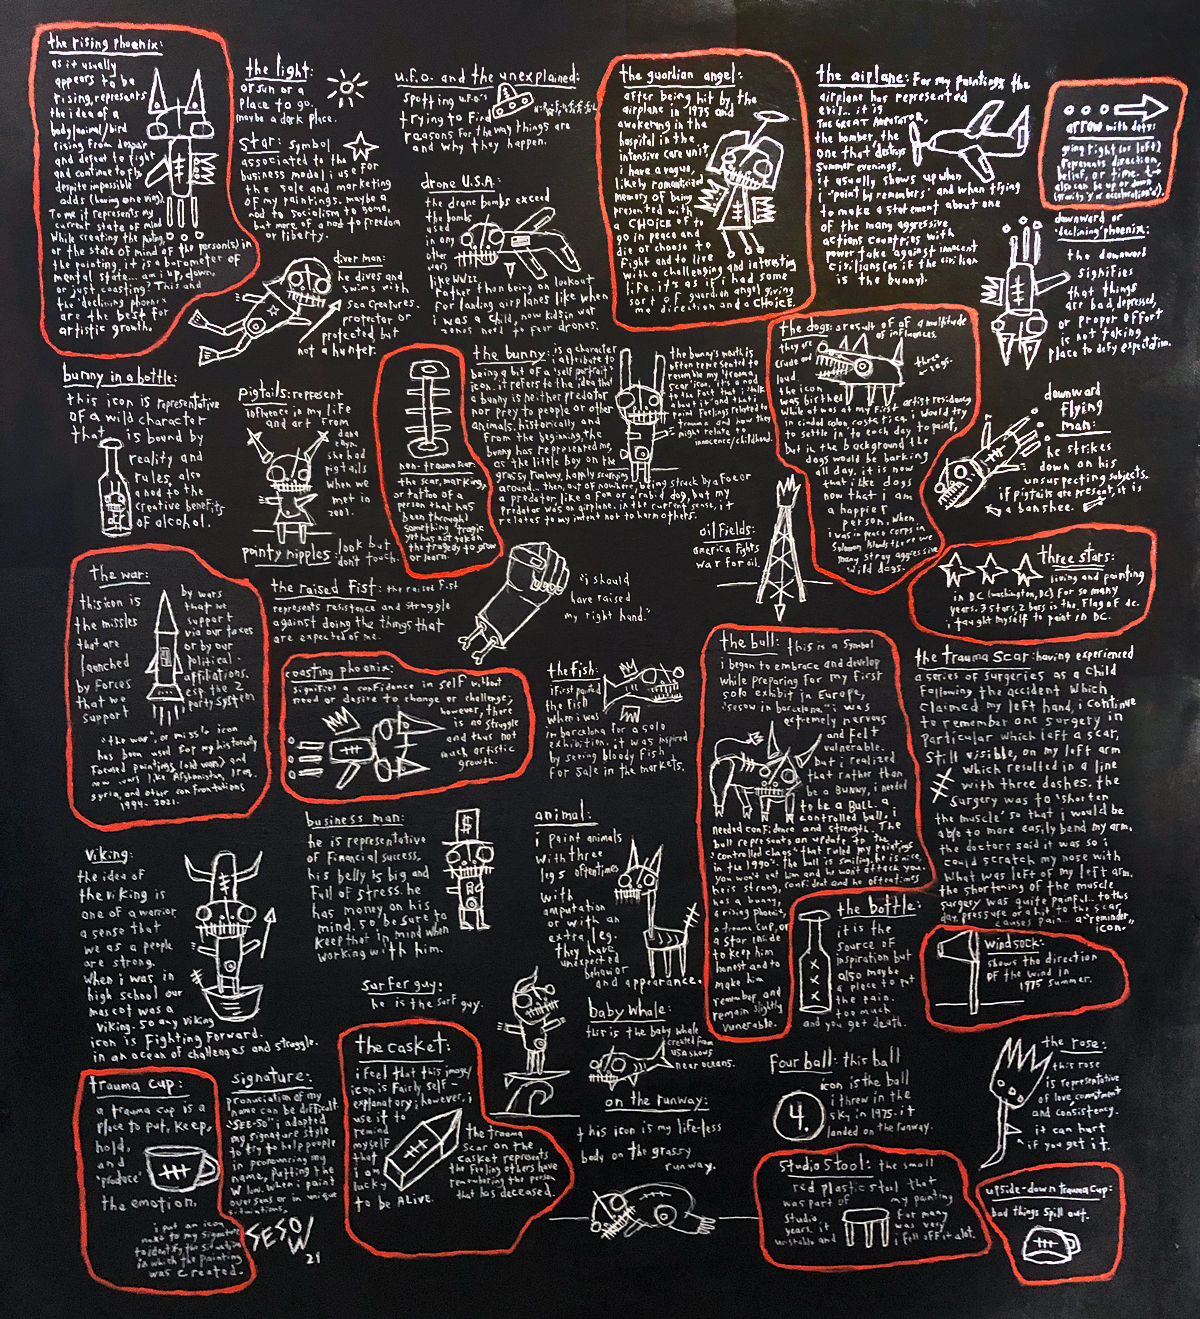 the rising phoenix:
as it usually
appears to be
rising, represents
the idea of a
body/animal/bird
rising from despair
and defeat to fight
and continue to fly
despite impossible
odds (having one wing).
To me it represents my
current state of mind
while creating the painting,
or the state of mind of the person(s) in
the painting. it is a barometer of
mental state... am i up, down,
or just coasting? This and
the 'declining' phoenix
are the best for
artistic growth.
the light:
or sun or a
place to go.
maybe a dark place.
star: symbol
associated to the
business model i use for
the sale and marketing
of my paintings. maybe a
nod to socialism to some,
but more of a nod to freedom
or liberty.
u.f.o. and the unexplained:
spotting u.f.o.'s
trying to find
reasons for the way things are
and why they happen.
drone U.S.A:
the drone bombs exceed
the bombs
used
in any
other
wars
like WWII.
rather than being on lookout
for landing airplanes like when
i was a child, now kids in war
zones need to fear drones.
the guardian angel:
after being hit by the
airplane in 1975 and
awakening in the
hospital in the
intensive care unit
i have a vague,
likely romanticized
memory of being
presented with
a CHOICE to
go in peace and
die or choose to
fight and to live
with a challenging and interesting
life. it's as if i had some
sort of guardian angel giving
me direction and a CHOICE.
the airplane: For my paintings the
airplane has represented
evil... it is
THE GREAT AMPUTATOR,
the bomber, the
one that destroys
summer evenings.
it usually shows up when
i 'paint by remembers' and when trying
to make a statement about one
of the many aggressive
actions countries with
power take against innocent
civilians (as if the civilian
is the bunny).
arrow with dots:
going right (or left)
represents direction,
belief, or time.
also can be up or down
(gravity or acceleration).
downward or
'declining' phoenix:
the downward
signifies
that things
are bad, depressed,
or proper effort
is not taking
place to defy expectation.
diver man:
he dives and
swims with
sea creatures.
protector or
protected, but
not a hunter.
bunny in a bottle:
this icon is representative
of a wild character
that is bound by
reality and
rules, also
a nod to the
creative benefits
of alcohol.
pigtails: represent
influence in my life
and art from
dawn
lynn.
she had
pigtails
when we
met in
2001.
pointy nipples: look but
don't touch.
non-trauma scar:
the scar, marking,
or tattoo of a
person that has
been through
something tragic
yet has not taken
the tragedy to grow
or learn.
the bunny: is a character
i attribute to
being a bit of a 'self portrait'
icon. it refers to the idea that
a bunny is neither predator
nor prey to people or other
animals. historically and
from the beginning, the
bunny has represented me,
as the little boy on the
grassy runway, happily scurrying
around then, out of nowhere, being struck by a foe or
a predator, like a fox or a rabid dog, but my
predator was an airplane. in the current sense, it
relates to my intent not to harm others.
the bunny's mouth is
often represented to
resemble my 'trauma
scar' icon. it's a nod
to the fact that i talk
about it and that i
paint feelings related to
trauma and how they
might relate to
innocence/childhood.
the dogs: a result of a multitude
of influences.
they are
crude and
loud.
the icon
was birthed
three
legs.
artist residency
while at was at my first
in ciudad colon, costa rica. i would try
to settle in to each day to paint,
but in the background the
dogs would be barking
all day. it is now
that i like dogs
now that i am
a happier
person. when
i was in peace corps in
solomon islands there were
many stray aggressive
wild dogs.
downward
flying
man:
he strikes
down on his
unsuspecting subjects.
if pigtails are present, it is
a banshee.
oil fields:
america fights
war for oil.
three stars:
living and painting
in DC (washington, DC) for so many
years. 3 stars, 2 bars is the flag of dc.
i taught myself to paint in DC.
the war:
this icon is
the missles
that are
launched
by forces
that we
support
by wars
that we
support
via our taxes
or by our
political
affiliations.
esp. the 2
party system
'the war' or missle icon
has been used for my historically
focused paintings (old wwII) and
wars like Afghanistan, Iraq,
syria, and other confrontations
1994-2021.
the raised fist: the raised fist
represents resistance and struggle
against doing the things that
are expected of me.
"i should
have raised
my right hand."
coasting phoenix:
signifies a confidence in self without
need or desire to change or challenge,
however, there
is no struggle
and thus not
much artistic
growth.
the fish:
i first painted
the fish
when i was
in barcelona for a solo
exhibition. it was inspired
by seeing bloody fish
for sale in the markets.
the bull: this is a symbol
i began to embrace and develop
while preparing for my first
solo exhibit in Europe,
'sesow in barcelona'. i was
extremely nervous
and felt
vulnerable.
but i realized
that rather than
be a bunny, i needed
to be a Bull. a
controlled bull. i
needed confidence and strength. The
bull represents an update to the
'controlled chaos' that ruled my paintings
in the 1990s. the bull is smiling, he is nice,
you won't eat him and he won't attack you.
he is strong, confident and he oftentimes
has a bunny,
a rising phoenix,
a trauma cup, or
a star inside
to keep him
honest and to
make him
remember and
remain slightly
vunerable.
the trauma scar: having experienced
a series of surgeries as a child
following the accident which
claimed my left hand, i continue
to remember one surgery in
particular which left a scar,
still visible, on my left arm
which resulted in a line
with three dashes. the
surgery was to 'shorten
the muscle' so that i would be
able to more easily bend my arm.
the doctors said it was so i
could scratch my nose with
what was left of my left arm.
the shortening of the muscle
surgery was quite painful... to this
day, pressure or a hit to this scar
causes pain... a "reminder"
icon.
business man:
he is representative
of financial success,
his belly is big and
full of stress. he
has money on his
mind, so be sure to
keep that in mind when
working with him.
animal:
i paint animals
with three
legs oftentimes
with
amputation
or with an
extra leg.
they have
unexpected
behavior
and appearance.
viking:
the idea of
the viking is
one of a warrior
a sense that
we as a people
are strong.
when i was in
high school our
mascot was a
viking. so any viking
icon is fighting forward.
in an ocean of challenges and struggle.
surfer guy:
he is the surf guy.
the bottle:
it is the
source of
inspiration but
also maybe
a place to put
the pain.
too much
and you get death.
windsock:
shows the direction
of the wind in
1975 summer.
baby whale:
this is the baby whale
created from
USA shows
near oceans.
the casket:
i feel that this image/
icon is fairly self-
explanatory; however, i
use it to
remind
myself
that
i am
lucky
to be ALIVE.
the trauma
scar on the
casket represents
the feeling others have
remembering the person
that has deceased.
on the runway:
this icon is my life-less
body on the grassy
runway.
four ball: this ball
icon is the ball
i threw in the
sky in 1975. it
landed on the runway.
4.
the rose:
this rose
is representative
of love, commitment
and consistency.
it can hurt
if you get it.
trauma cup:
a trauma cup is a
place to put, keep,
hold,
and
'produce'
the emotion.
i put an icon
next to my signature
to identify the situation
in which the painting
was created.
signature:
pronuciation of my
name can be difficult
"SEE-SO" i adapted
my signature style
to try to help people
in pronouncing my
name, putting the
W low. when i paint
overseas or in unique
situations,
SESOW
21
studio stool: the small
red plastic stool that
was part of my painting
studio for many
years. it was very
unstable and i fell off it alot.
upside-down trauma cup:
bad things spill out.